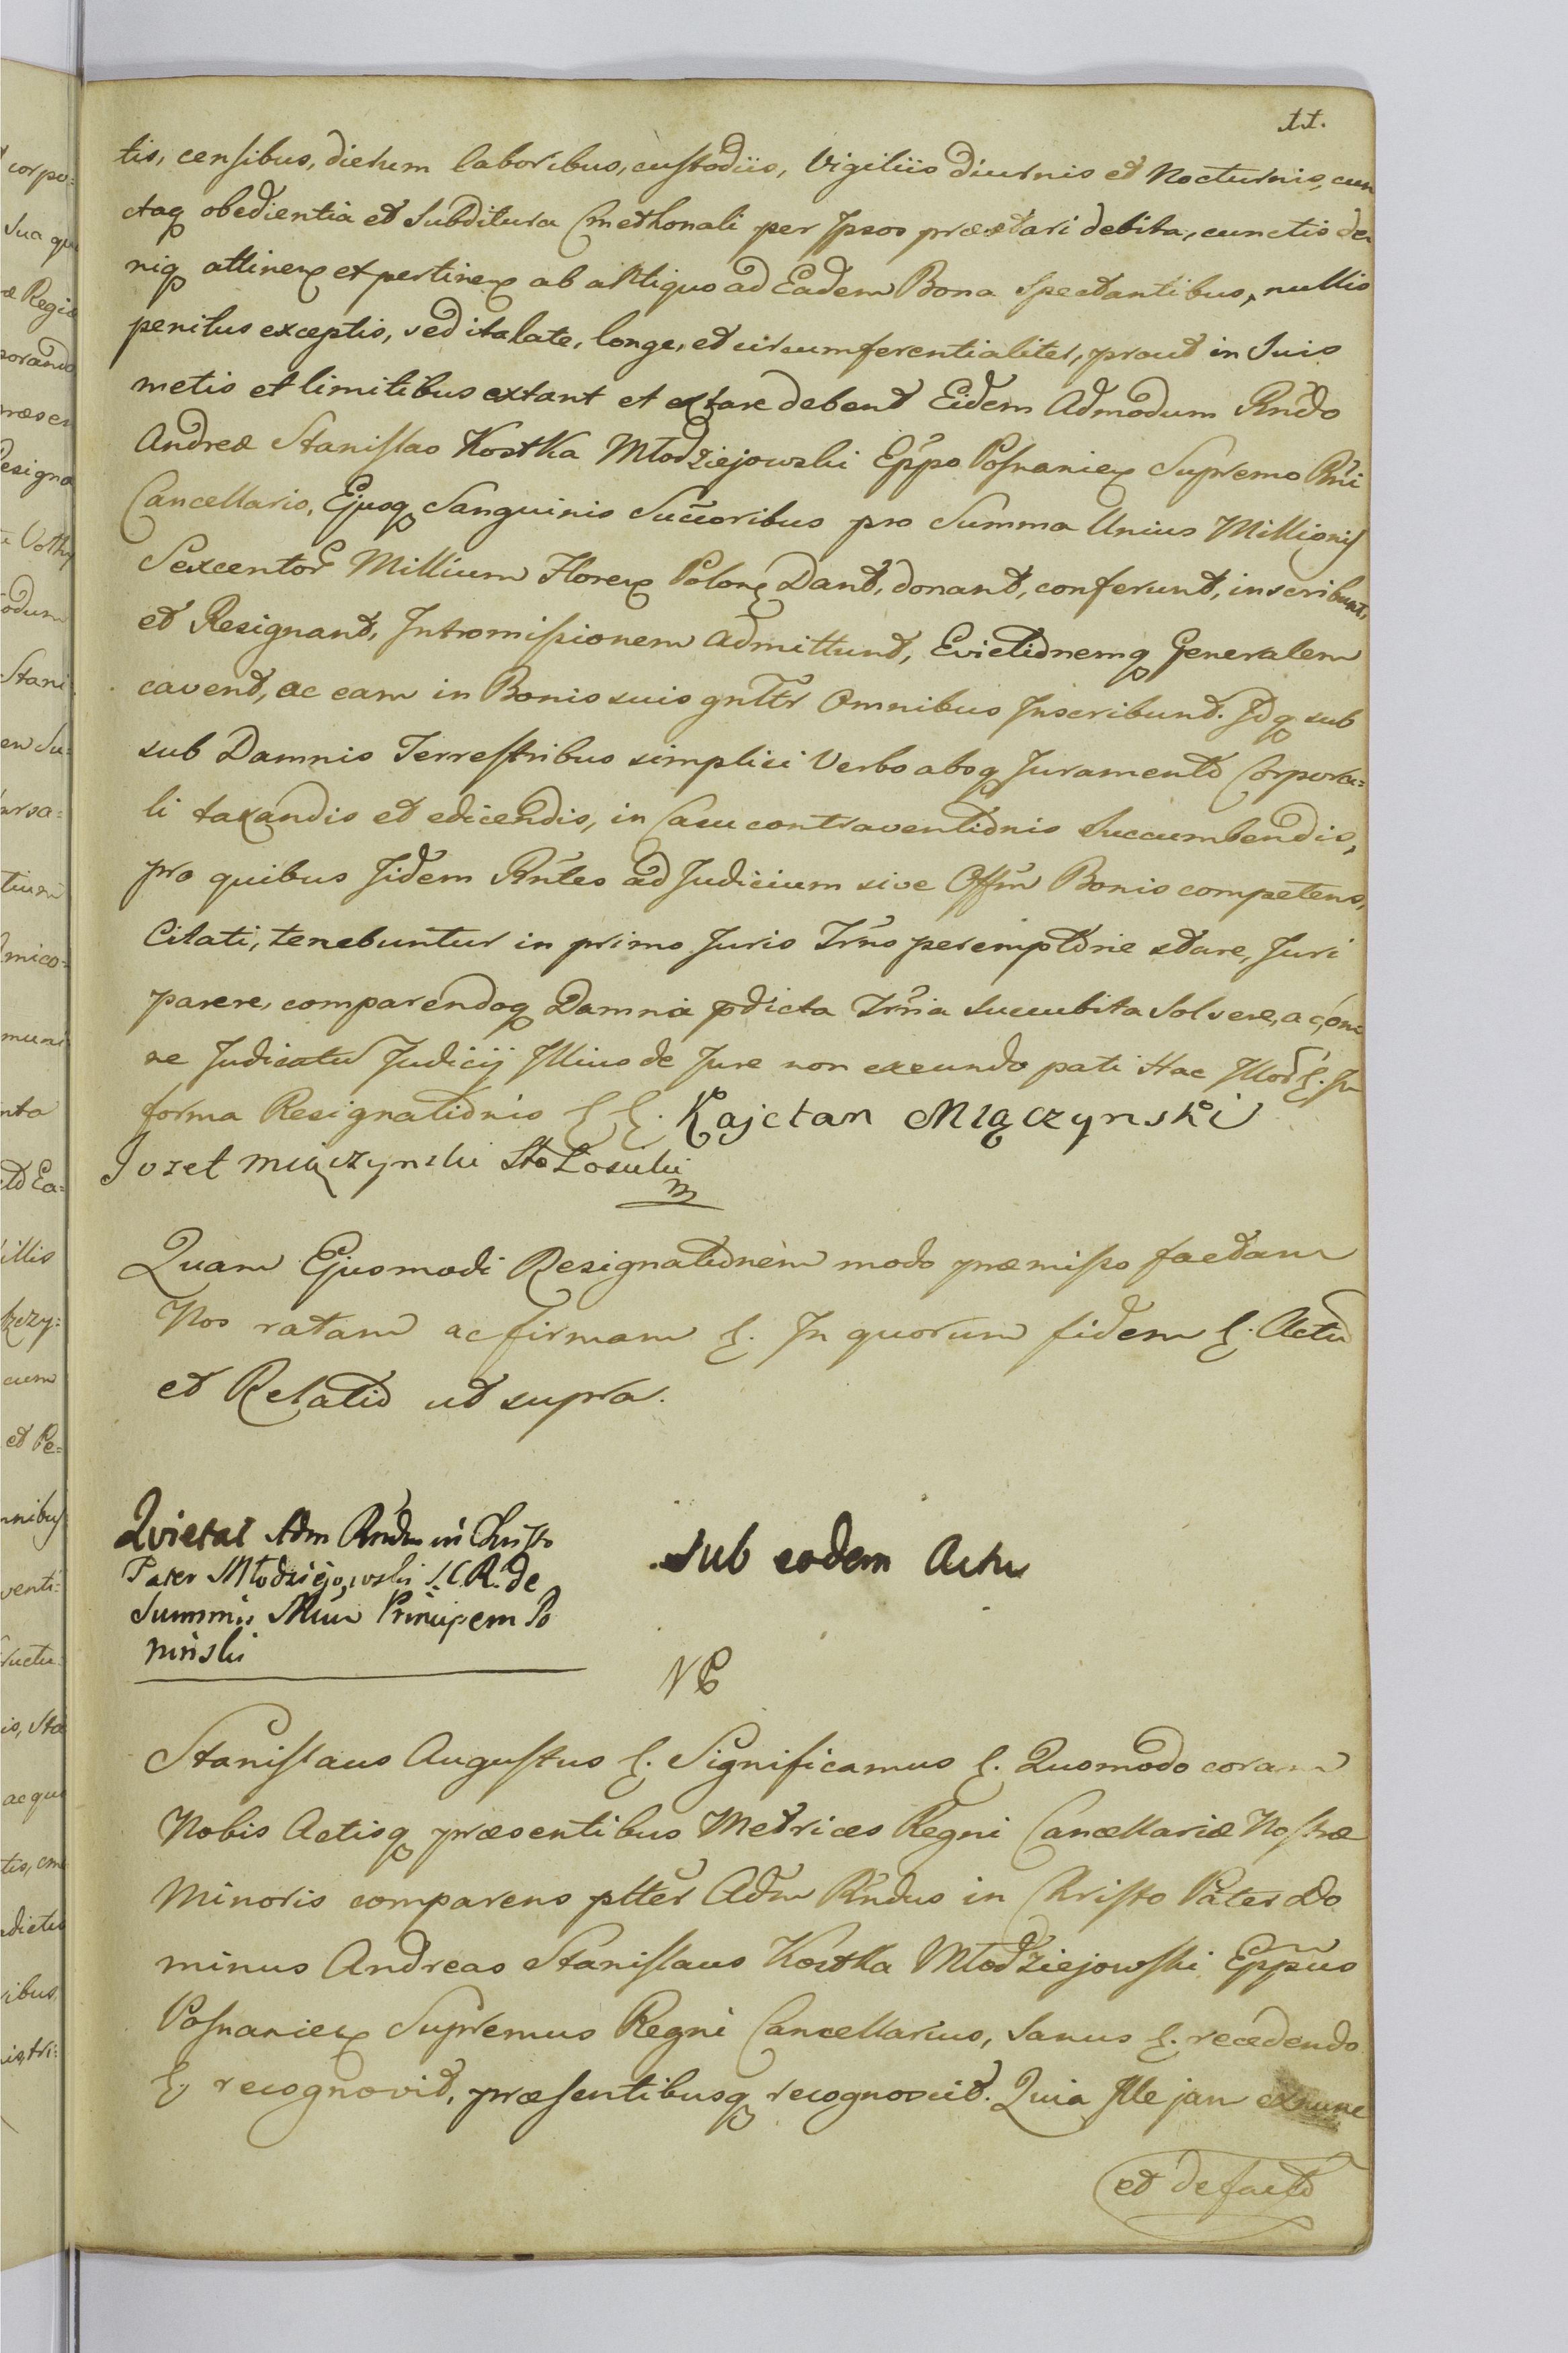 11.
tis, censibus, dierum laboribus, custodiis, Vigiliis diurnis et Nocturnis, cun
ctaq obedientia et Subditura Cmethonali per Ipsos præstari debita, cunctis de
niq attinen et pertinen ab antiquo ad Eadem Bona Spectantibus, nullis
penitus exceptis, sed ita late, longe, et circumferentialiter, prout in Suis
metis et limitibus extant et extare debent Eidem Admodum Rndo
Andreæ Stanislao Kostka Młodziejowski Eppo Posnanien Supremo Rni
Cancellario, Ejusq Sanguinis Succoribus pro Summa Unius Millionis
Sexcentor Millium Floren Polon Dant, donant, conferunt, inscribunt,
et Resignant, Intromissionem admittunt, Evictionemq Generalem
cavent, ac eam in Bonis suis gnltr Omnibus Inscribunt. Idq sub
sub Damnis Terrestribus simplici Verbo absq Juramento Corpora=
li taxandis et edicendis, in Casu contraventionis Succumbendis,
pro quibus Iidem Rntes ad Judicium sive Offm Bonis competens,
Citati, tenebuntur in primo Juris Trno peremptorie stare, Juri
parere, comparendoq Damna pdicta Trnia succubita Solvere, a
ne Judicatu Judicij Illius de Jure non exeundo pati Hac In
forma Resignationis Kajetan Miączynski
Jozef Miączynski Sta Łosicki
Quam Ejusmodi Resignationem modo præmisso factam
Nos ratam ac firmam &. In quorum fidem &. Actu
et Relatio ut supra.
Quietat Adm Rndus in Christo
Pater Młodziejowski S.C.R. de
Summis Illum Principem Po
niński
Sub eodem Actu
Stanislaus Augustus &. Significamus &. Quomodo coram
Nobis Actisq præsentibus Metrices Regni Cancellariæ Nostræ
Minoris comparens pltter Adm Rndus in Christo Pater Do
minus Andreas Stanislaus Kostka Młodziejowski Eppus
Posnanien Supremus Regni Cancellarius, Sanus &. recedendo
&. recognovit, præsentibusq recognoscit. Quia Ille jam exnunc
et defacto